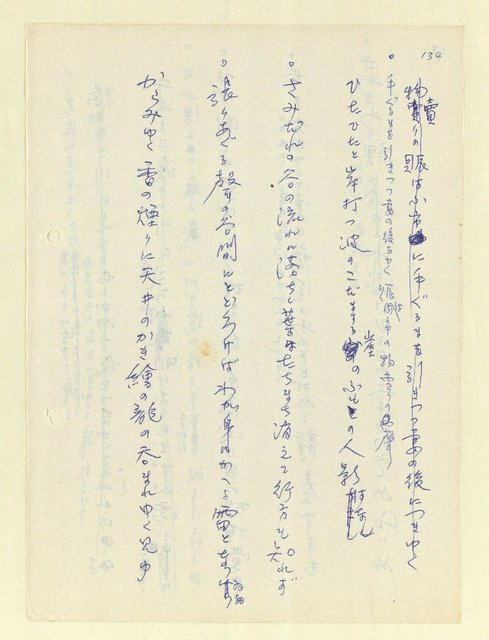 134
物賣りの賑はふ市に手ぐるまを引きつつ妻の後につきゆく
。手ぐるまを引きつつ妻の後をゆく賑はふ市の物賣りの聲
ひたひたと岸打つ波のこだまする崖のふもとの人影はなし
。さみだれの谷の流れに落ちし葉はたちまち消えて行方も知れず
。張りあぐる聲の谷間にとどろけばわが身はかへる雷となり
からみゆく香の煙りに天井のかき繪の龍の呑まれゆく見ゆ